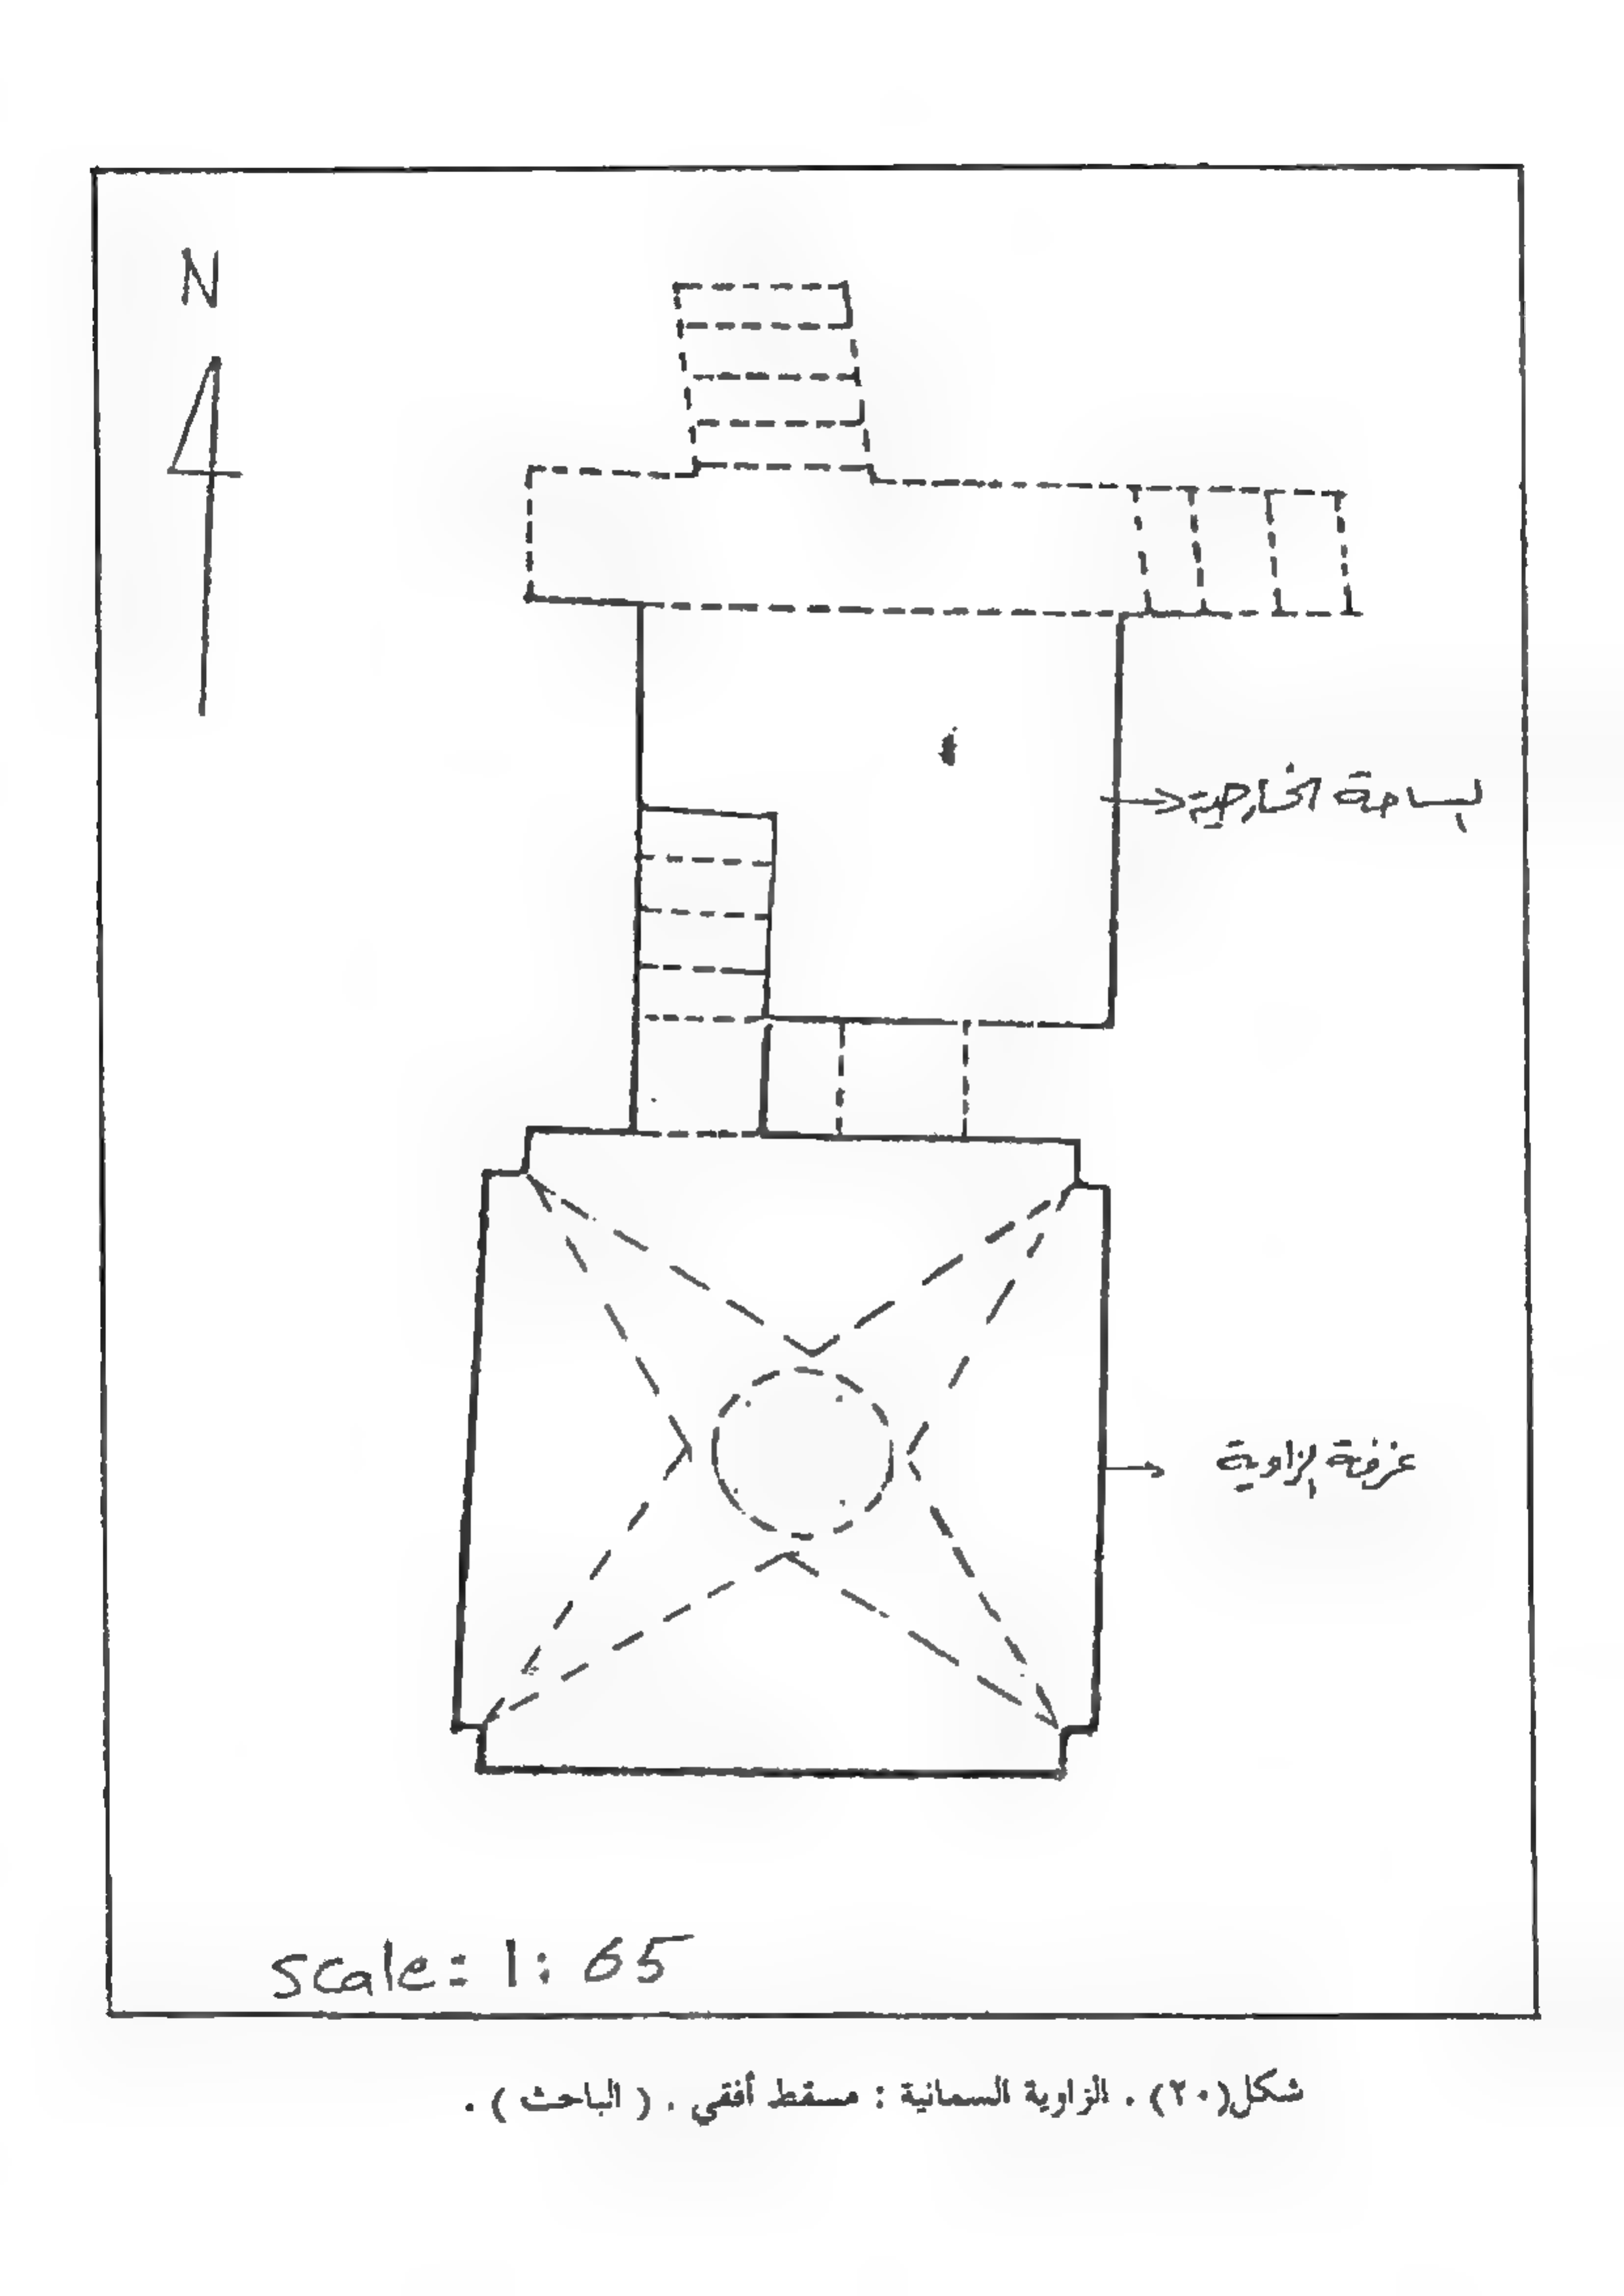 N
الساحة الخارجية
غرفة الزاوية
Scale = 1 : 65
شكل(٢٠) . الزاوية السمانية : مسقط أفقي . ( الباحث ) .